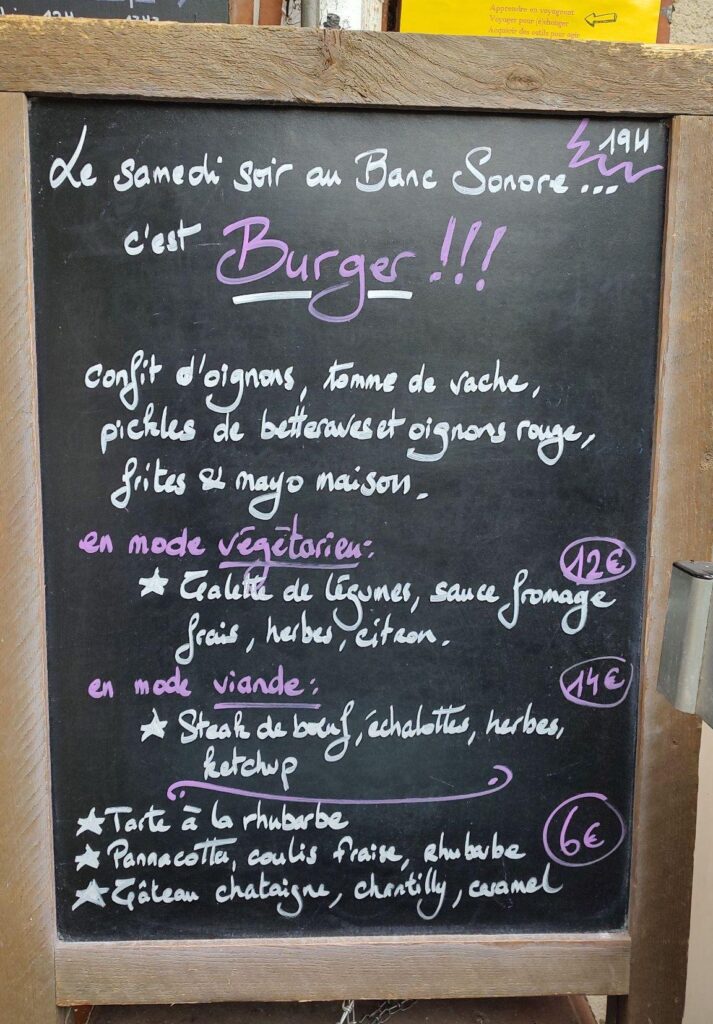 Apprendre en voyageant
Voyager pour (é)changer
Acquérir des outils pour agir
19H
Le samedi soir au Banc Sonore...
c'est Burger !!!
confit d'oignons, tomme de vache,
pickles de betteraves et oignons rouge,
frites & mayo maison.
en mode végétarien:
12€
★ Galette de légumes, sauce fromage
frais, herbes, citron.
en mode viande:
14€
★ Steak de bœuf, échalottes, herbes,
ketchup
★ Tarte à la rhubarbe
★ Pannacotta, coulis fraise, rhubarbe
6€
★ Gâteau chataigne, chantilly, caramel